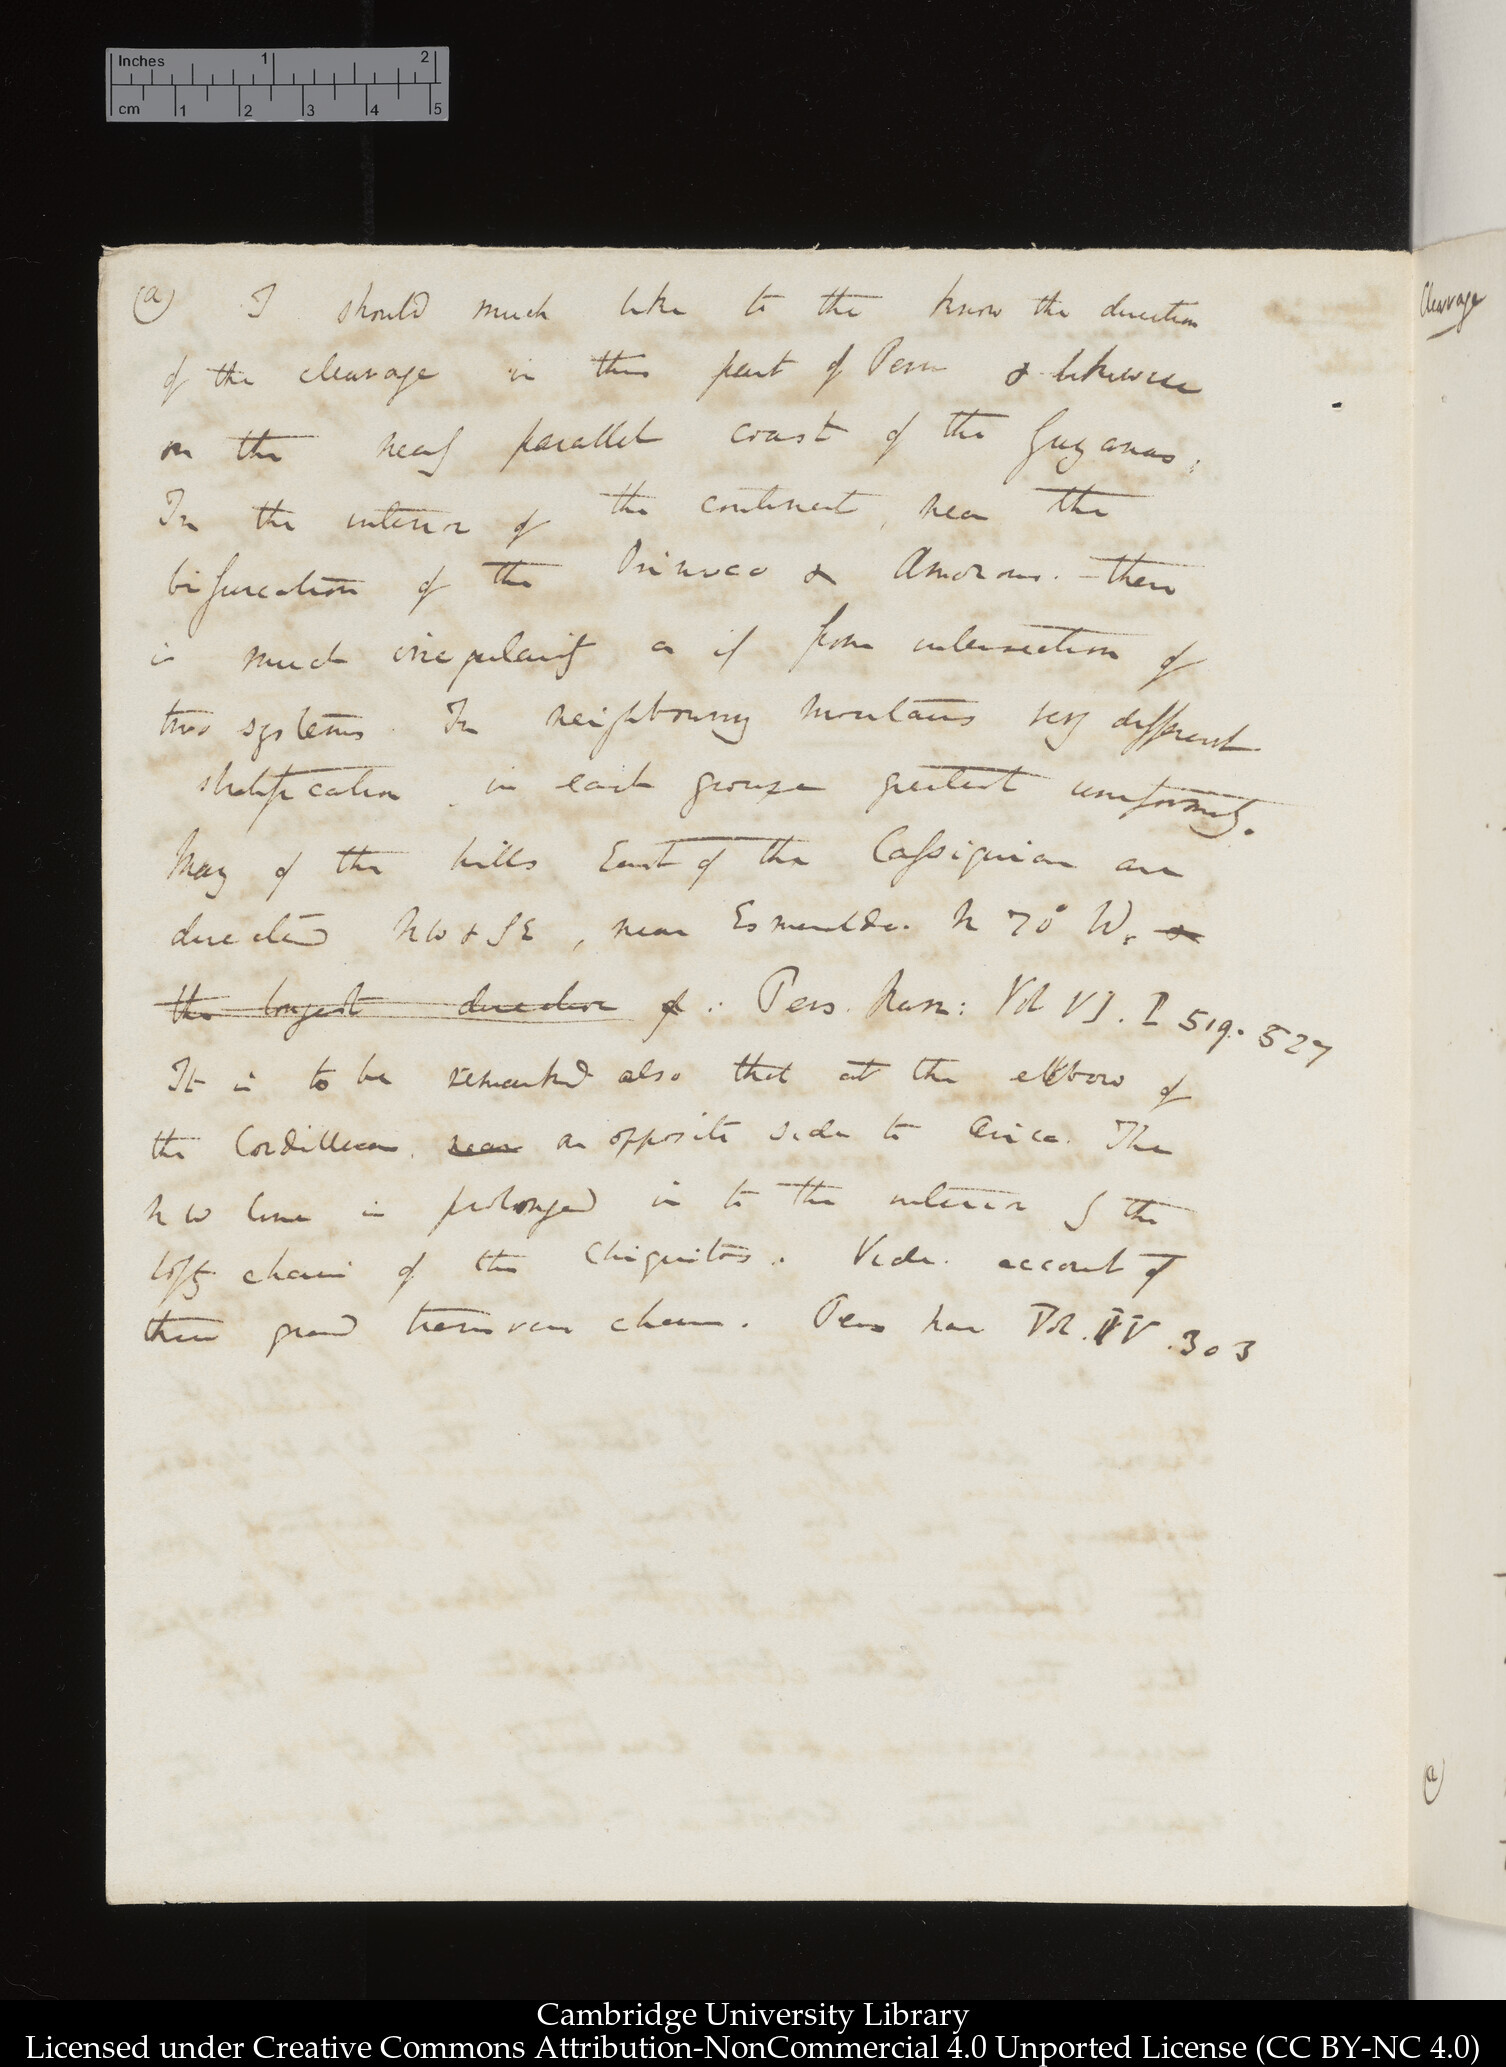 Inches 1 2
cm 1 2 3 4 5
(a) I should much like to the know the direction
of the cleavage in this part of Peru & likewise
on the nearly parallel coast of the Guyanas;
In the interior of the continent, near the
bifurcation of the Orinoco & Amazons. – there
is much irregularity as if from intersection of
two systems. In neighbouring mountains very different
stratification, in each groupe greatest uniformity.
Many of the hills East of the Cassiquiare are
directed NW & SE, near Esmeralda. N 70° W. &
the longest direction of : Pers. Narr: Vol VI. P 519. 527
It is to be remarked also that at the elbow of
the Cordilleras, near on opposite side to Arica. The
NW line is prolonged in to the interior by the
lofty chain of the Chiquitos. Vide. account of
these grand transverse chains. Pers Nar Vol. IV .303
Cleavage
(a)
Cambridge University Library
Licensed under Creative Commons Attribution-NonCommercial 4.0 Unported License (CC BY-NC 4.0)